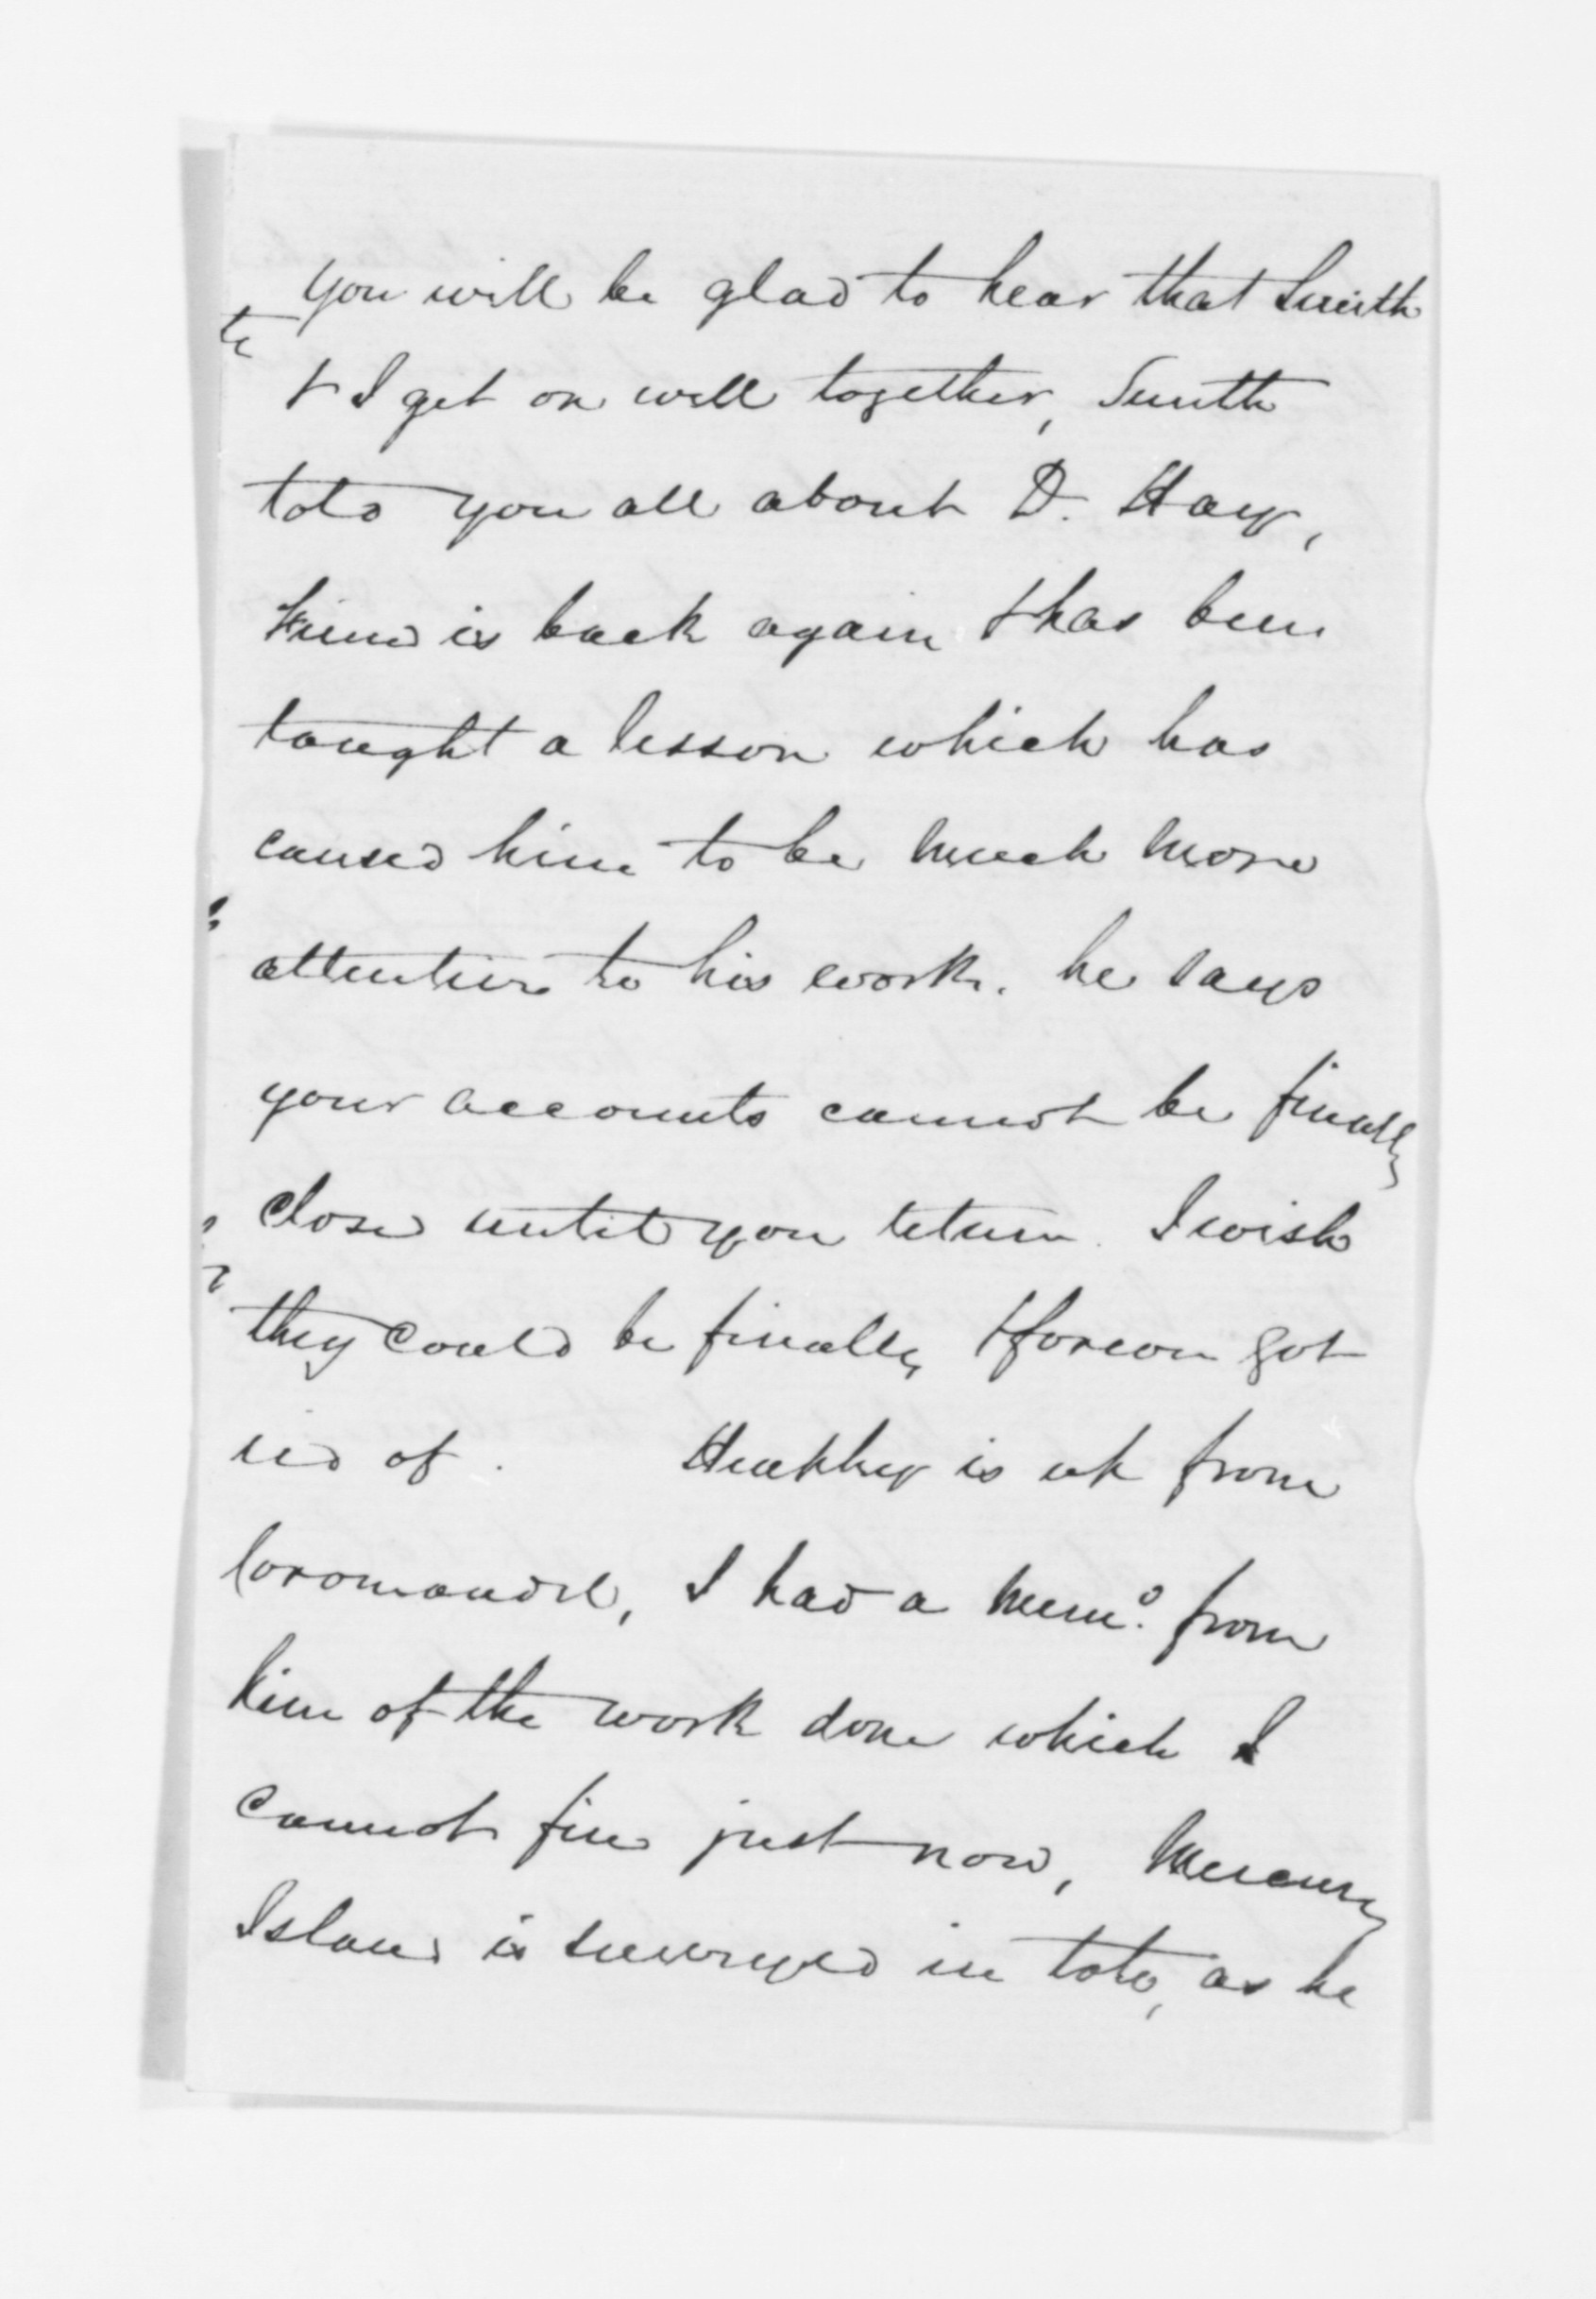 You will be glad to hear that Smith
& I get on well together, Smith
told you all about D. Hay,
is back again & has been
taught a lesson which has
caused him to be much more
attentive to his work. he says
your accounts cannot be finally
closed until you return. I wish
they could be finally & forever got
rid of. Heaphy is up from
Coromandel, I had a Memo. from
him of the work done which I
cannot find just now, Mercury
Island is surveyed in toto, as he